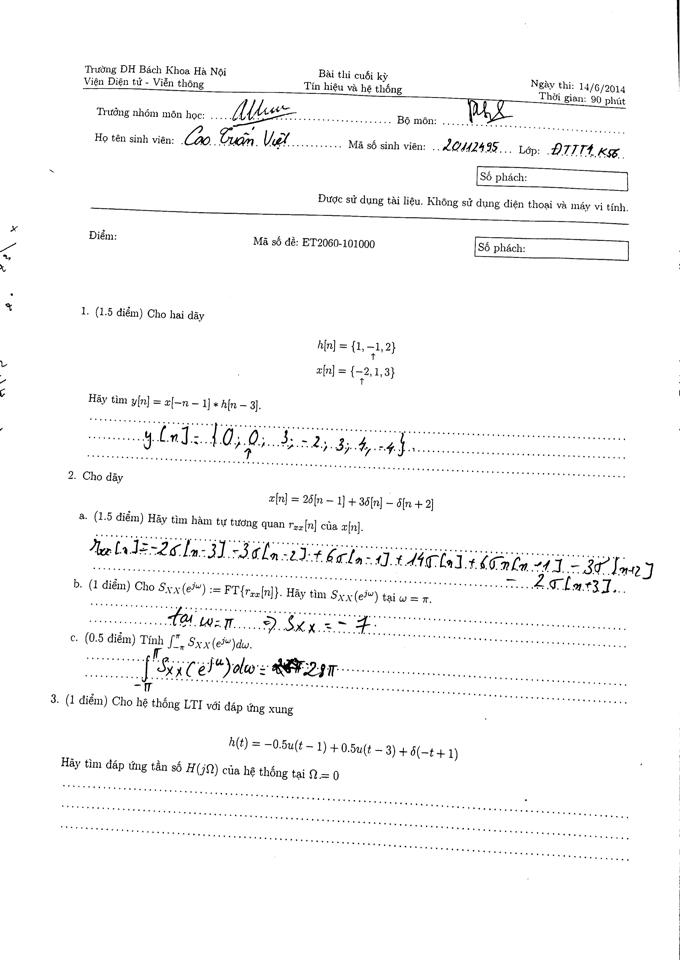 Trường DH Bách Khoa Hà Nội
Viện Điện tử - Viễn thông
Bài thi cuối kỳ
Tín hiệu và hệ thống
Ngày thi: 14/6/2014
Thời gian: 90 phút
Trưởng nhóm môn học:
Bộ môn:
Họ tên sinh viên: Cao Tuấn Việt Mã số sinh viên: 20112495 Lớp: ĐTTT1 K56
Số phách:
Được sử dụng tài liệu. Không sử dụng điện thoại và máy vi tính.
Điểm:
Mã số đề: ET2060-101000
Số phách:
1. (1.5 điểm) Cho hai dãy
h[n] = {1, −1, 2}
↑
x[n] = {−2, 1, 3}
↑
Hãy tìm y[n] = x[−n − 1] ∗ h[n − 3].
y[n] = {0; 0; 3; -2; 3; 4; -4}.
↑
2. Cho dãy
x[n] = 2δ[n − 1] + 3δ[n] − δ[n + 2]
a. (1.5 điểm) Hãy tìm hàm tự tương quan rxx[n] của x[n].
rxx[n] = -2δ[n-3] - 3δ[n-2] + 6δ[n-1] + 14δ[n] + 6δn[n+1] - 3δ[n+2]
- 2δ[n+3].
b. (1 điểm) Cho SXX(e^jω) := FT{rxx[n]}. Hãy tìm SXX(e^jω) tại ω = π.
tại ω = π ⇒ Sxx = -7
c. (0.5 điểm) Tính ∫−π^π SXX(e^jω)dω.
∫-π^π Sxx(e^jω)dω = 28π
3. (1 điểm) Cho hệ thống LTI với đáp ứng xung
h(t) = −0.5u(t − 1) + 0.5u(t − 3) + δ(−t + 1)
Hãy tìm đáp ứng tần số H(jΩ) của hệ thống tại Ω = 0